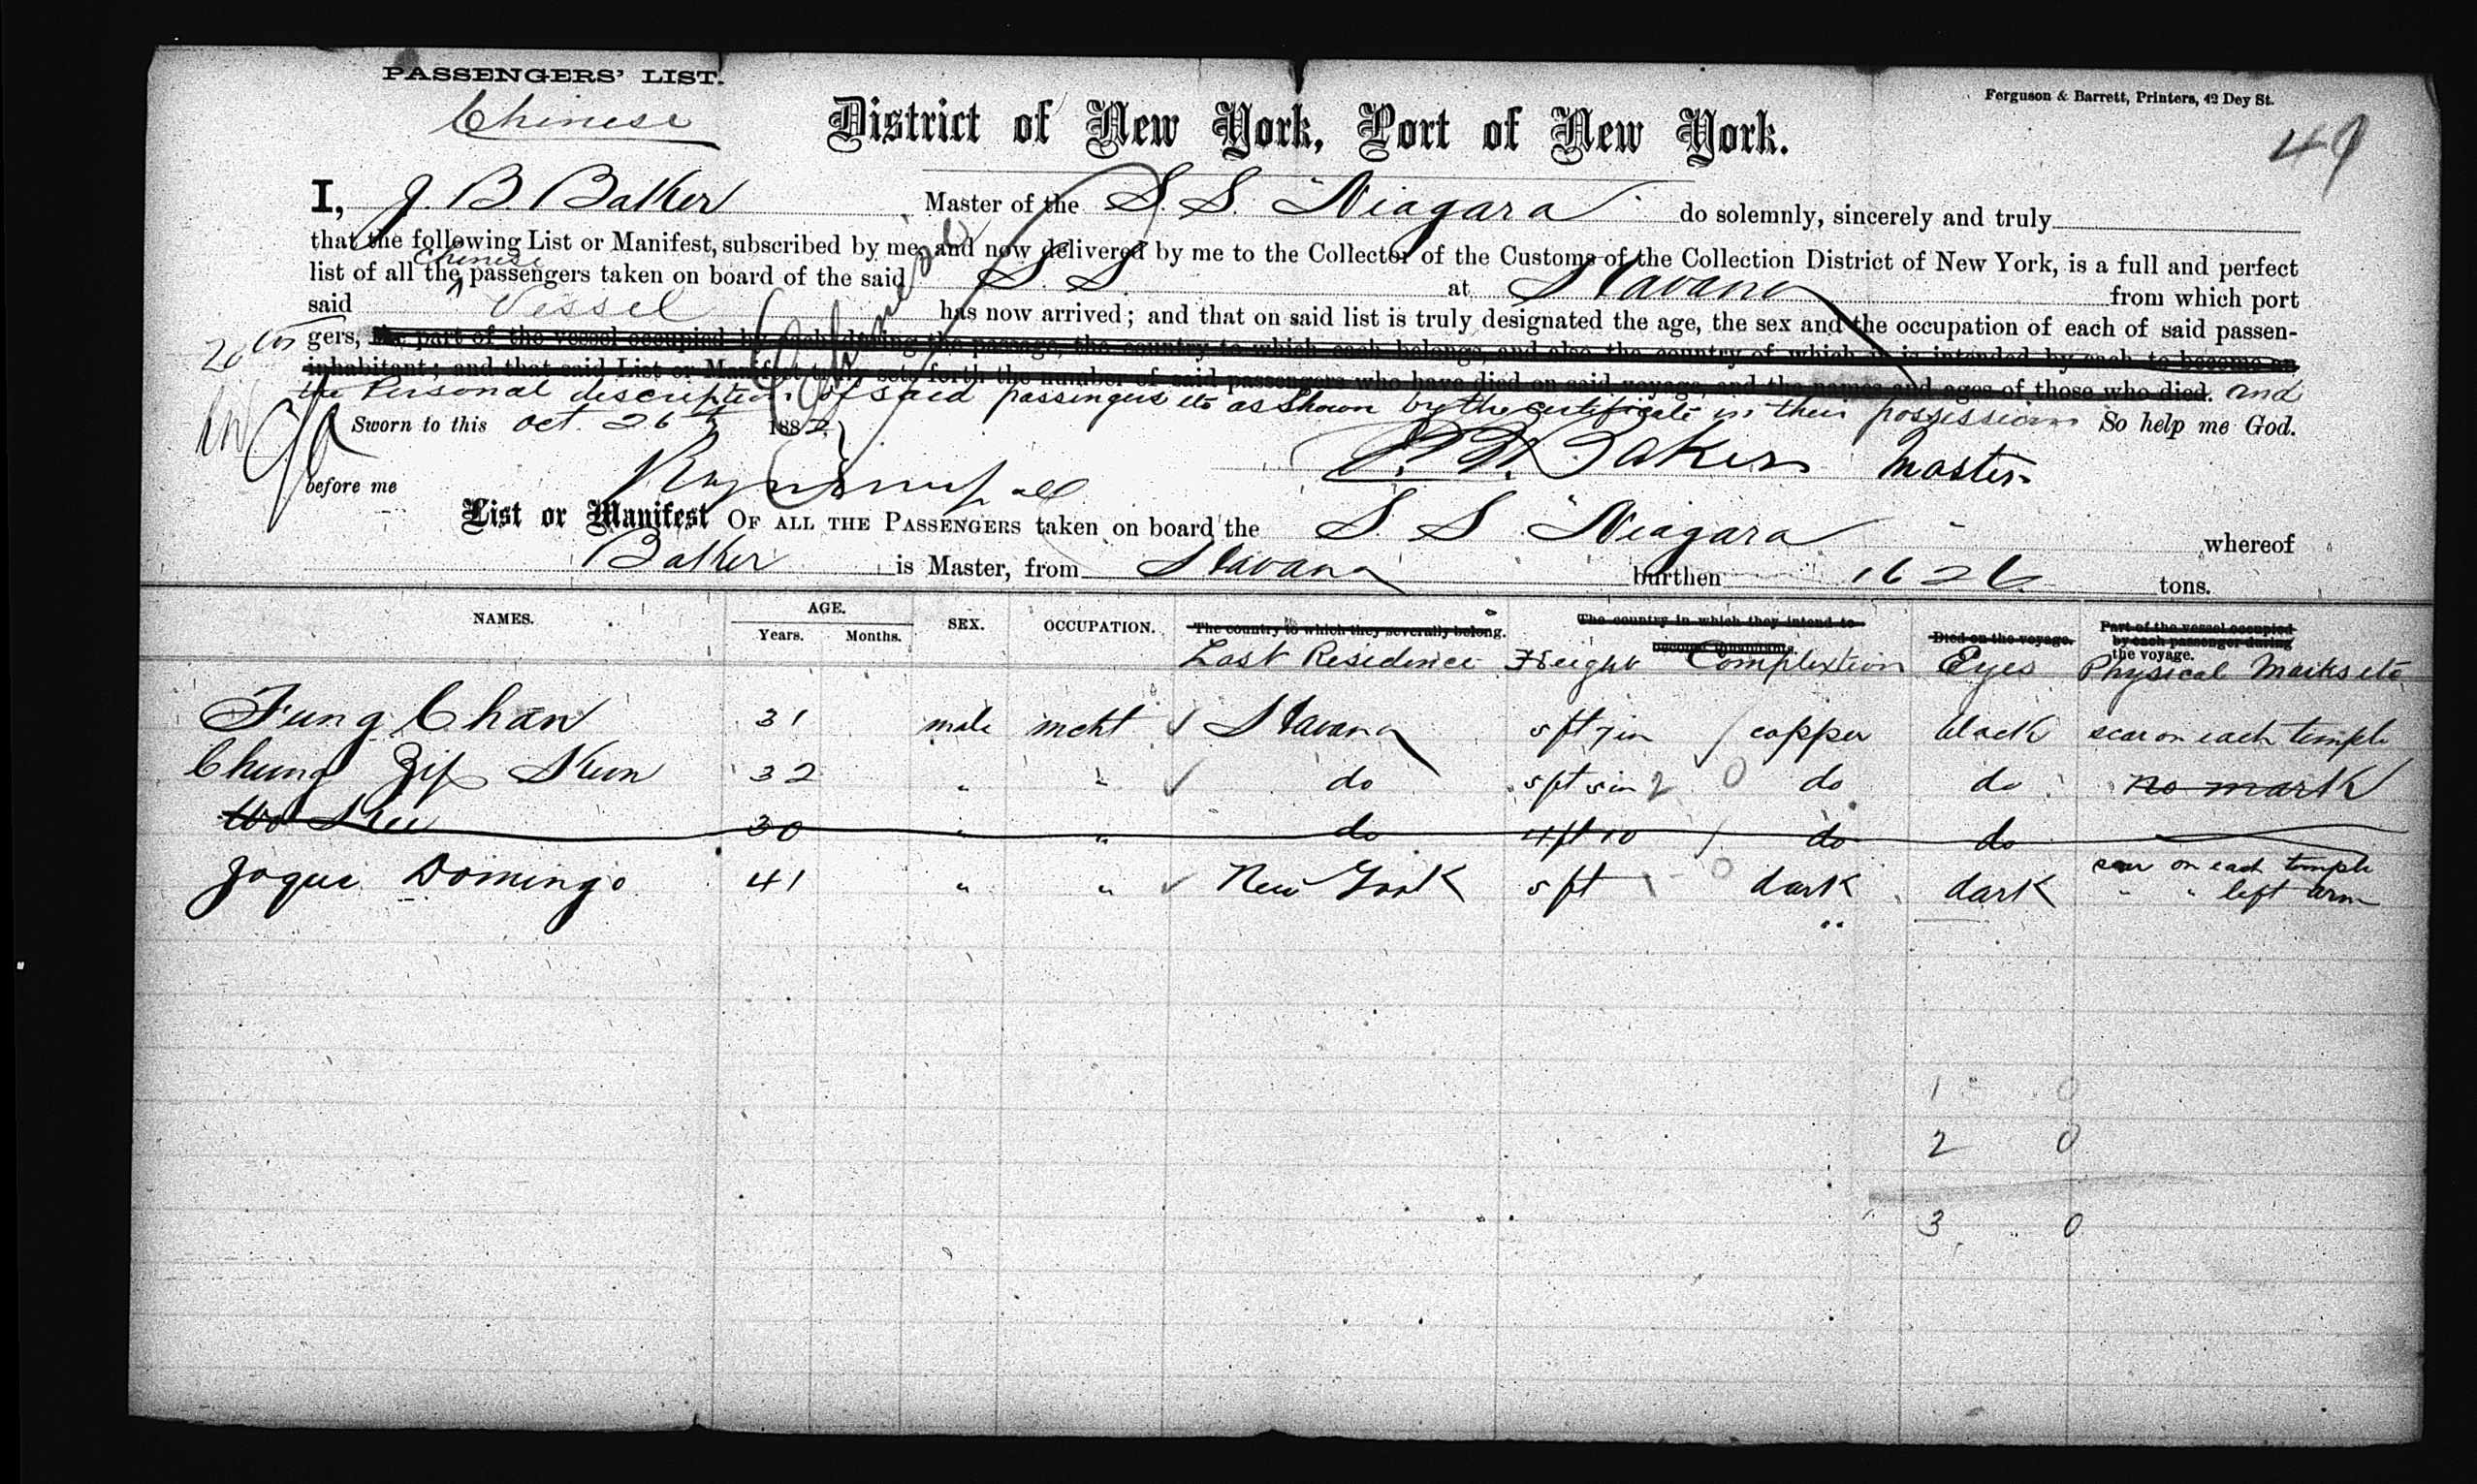 PASSENGERS' LIST.
Chinese
Ferguson & Barrett, Printers, 42 Dey St.
District of New York, Port of New York.
49
I, J. B. Baker Master of the S. S. Niagara do solemnly, sincerely and truly
that the following List or Manifest, subscribed by me, and now delivered by me to the Collector of the Customs of the Collection District of New York, is a full and perfect
list of all the Chinese passengers taken on board of the said S. S. at Havana from which port
said Vessel has now arrived; and that on said list is truly designated the age, the sex and the occupation of each of said passen-
gers, the part of the vessel occupied by each during the passage, the country to which each belongs, and also the country of which it is intended by each to become an
inhabitant; and that said List or Manifest truly sets forth the number of said passengers who have died on said voyage, and the names and ages of those who died. and
the Personal description of said passengers etc as Shown by the certificate in their possession So help me God.
Sworn to this Oct. 26th 1882
Baker Master
before me
List or Manifest OF ALL THE PASSENGERS taken on board the S. S. Niagara whereof
Baker is Master, from Havana burthen 1626 tons.
NAMES. AGE. Years. Months. SEX. OCCUPATION. The country to which they severally belong. The country in which they intend to become inhabitants. Died on the voyage. Part of the vessel occupied by each passenger during the voyage.
Last Residence Height Complextion Eyes Physical Marks etc
Fung Chan 31 male mcht Havana 5 ft 7 in / copper black scar on each temple
Chung Zip Kun 32 " " do 5 ft 5 in 2 0 do do no mark
Wo Kee 30 " " do 4 ft 10 / do do
Joque Domingo 41 " " New York 5 ft 1 - 0 dark dark scar on each temple
" " left arm
1 0
2 0
3 0